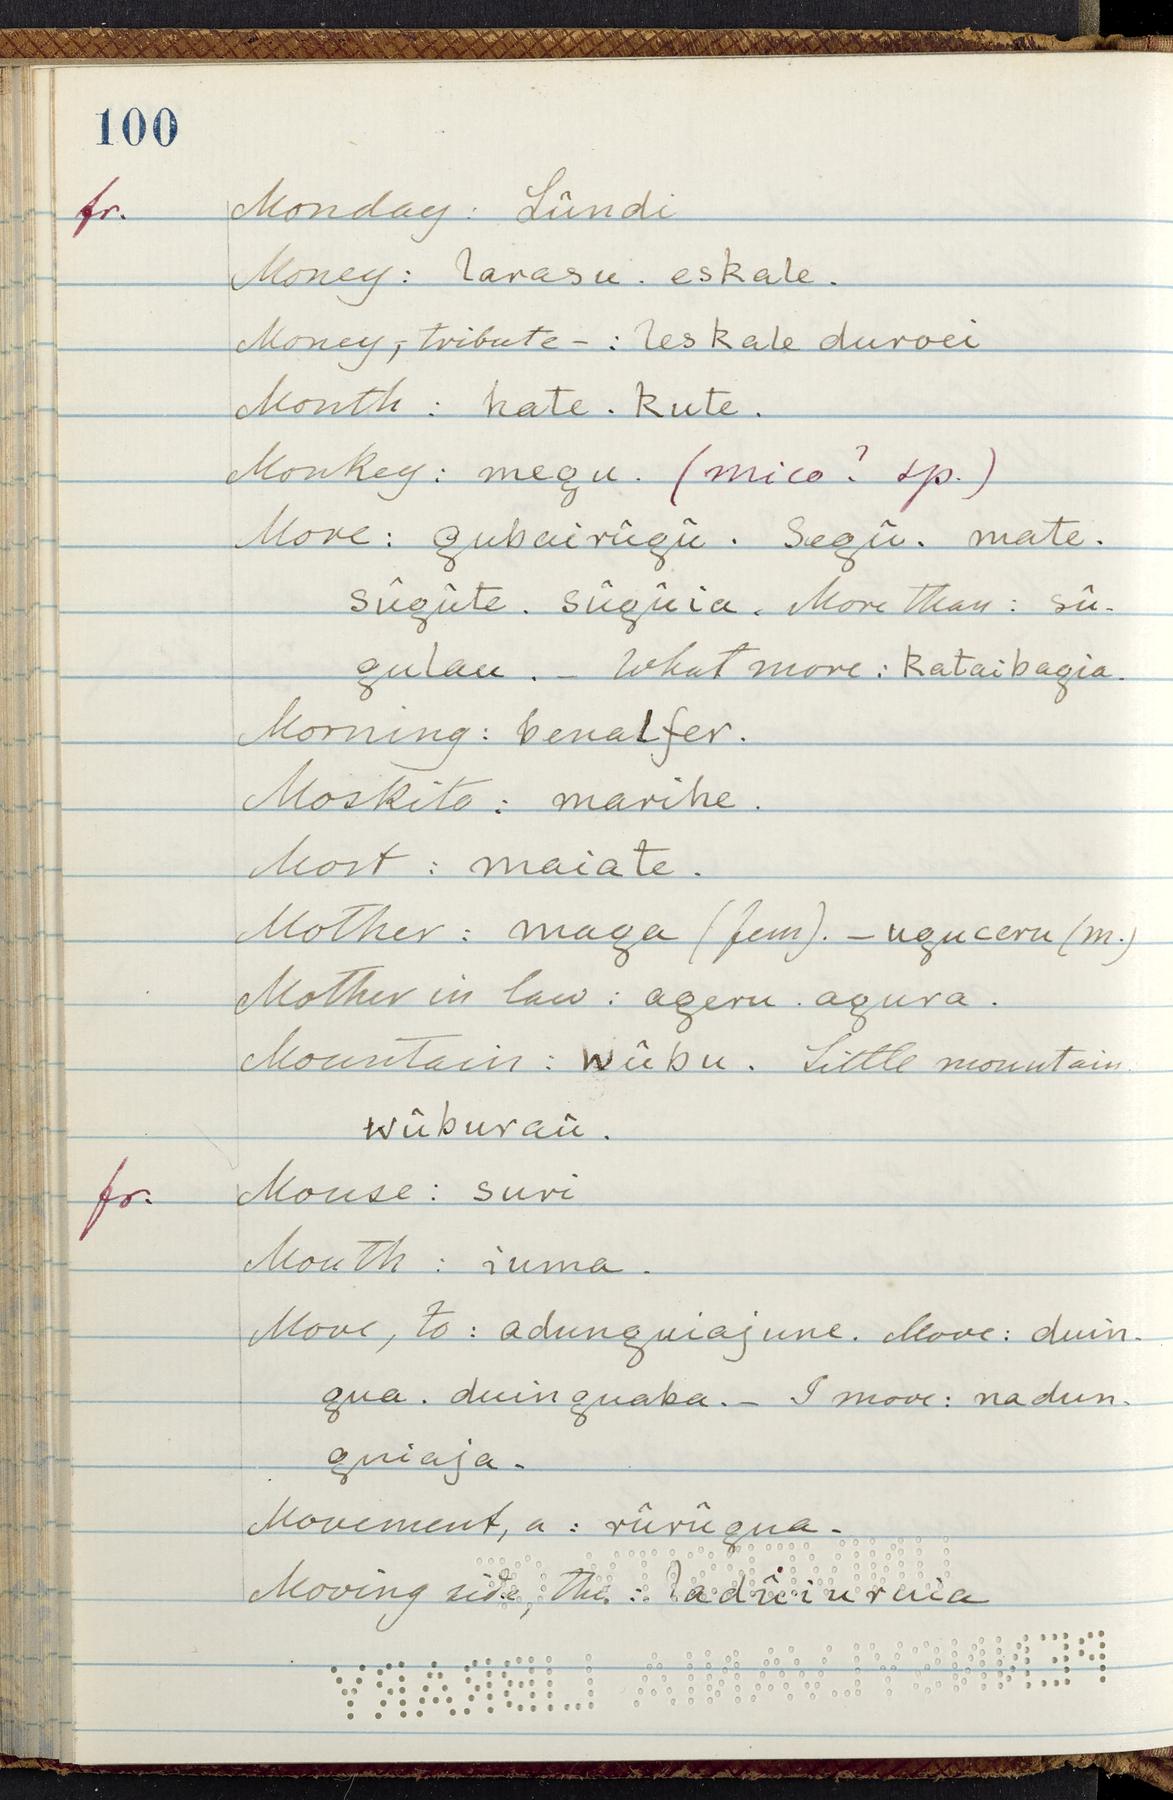 100
fr. Monday: Lûndi
Money: larasu. eskale.
Money, tribute - : leskale duroei
Month : hate. kute.
Monkey: megu. (mico? sp.)
More: gubairûgû. Segû. mate.
sûgûte. sûgûia. More than: sû-
gulau. - What more: kataibagia.
Morning: benalfer.
Moskito: marihe.
Most : maiate.
Mother: maga (fem). - uguceru (m.)
Mother in law : ageru. agura.
Mountain: wûbu. Little mountain
wûburaû.
fr. Mouse: suri
Mouth : iuma.
Move, to: adunguiajune. Move: duin-
gua. duinguaba. - I move: nadun-
guiaja.
Movement, a : rûrûgua.
Moving side, the : ladîciuruia
UNIVERSITY OF
PENNSYLVANIA LIBRARY